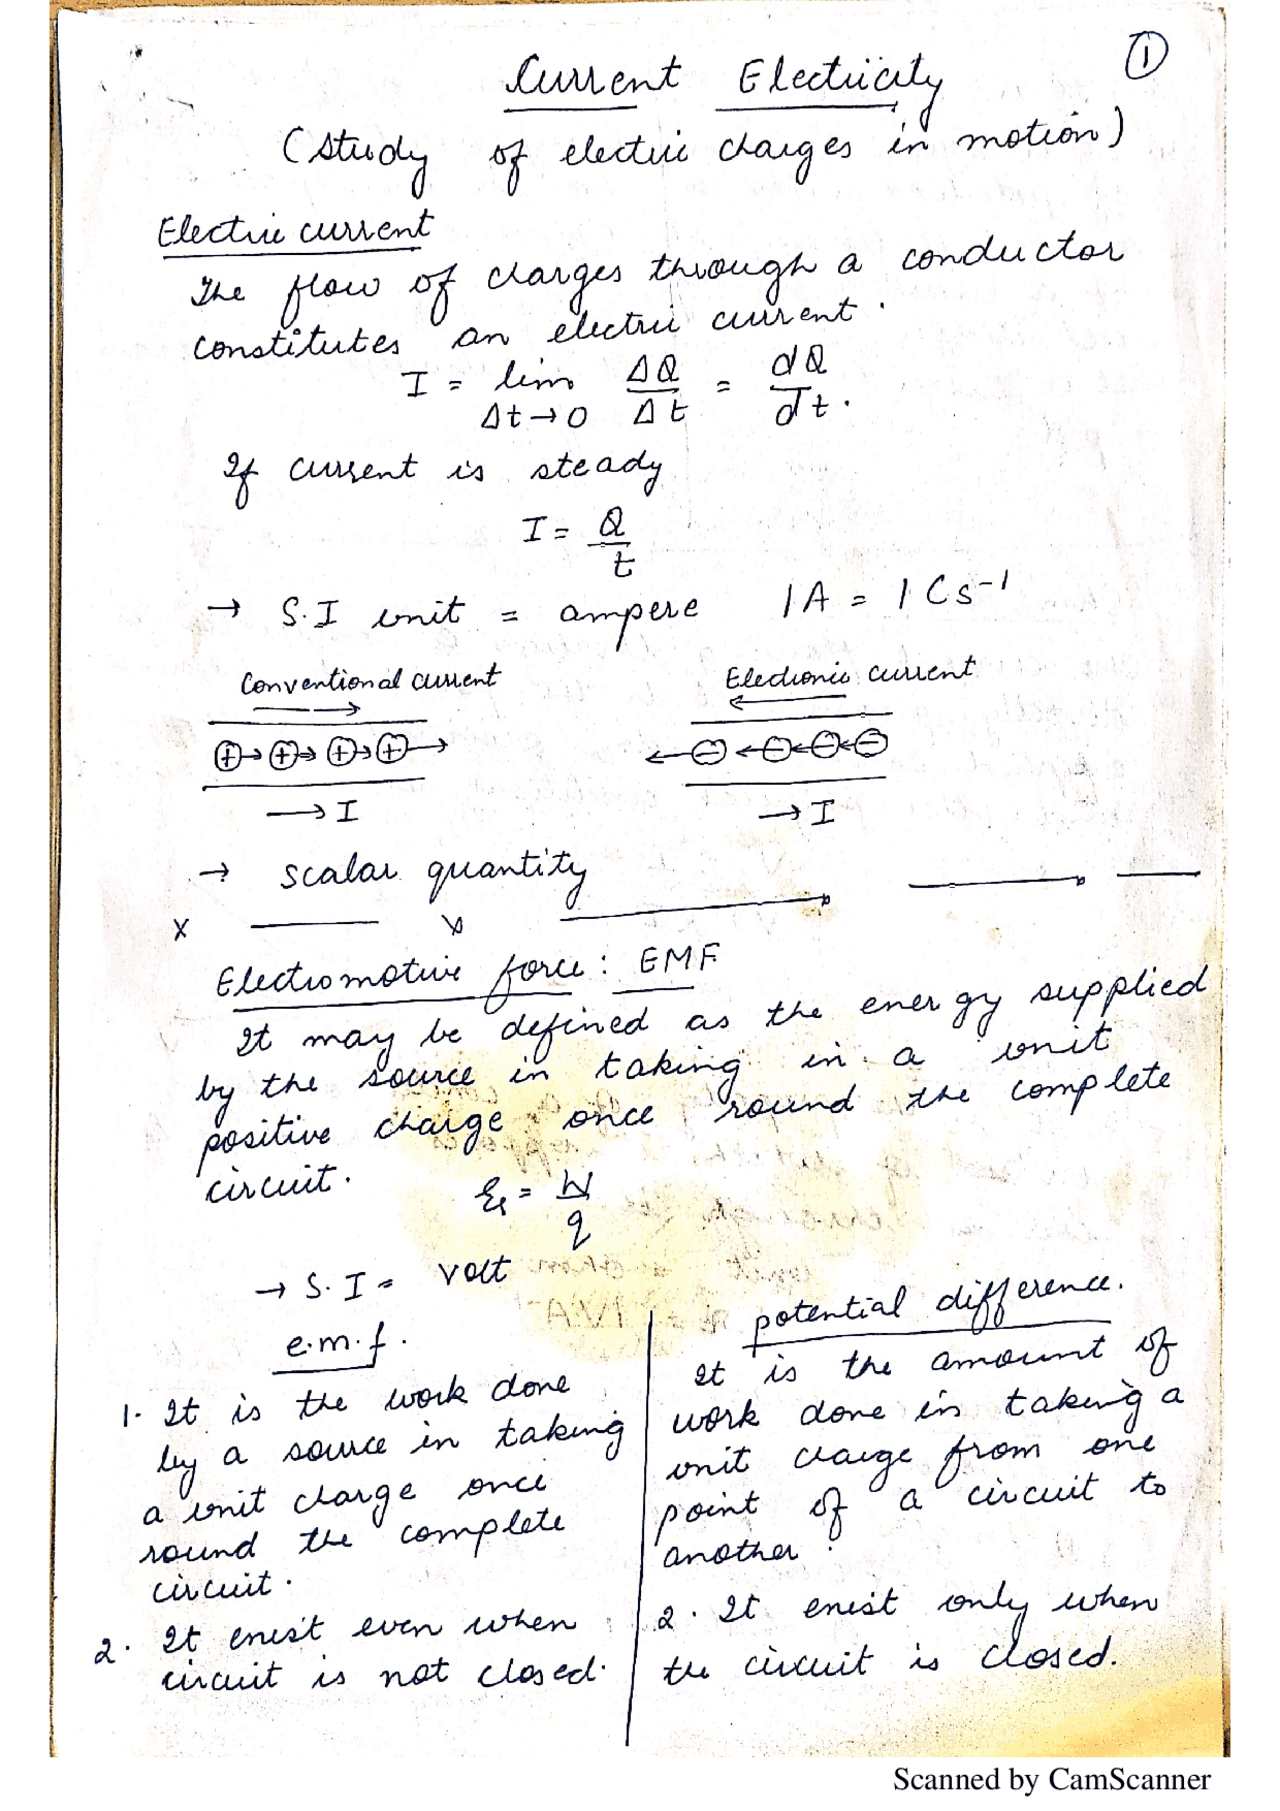 1
Current Electricity
(Study of electric charges in motion)
Electric current
The flow of charges through a conductor
constitutes an electric current.
I = lim ΔQ = dQ
Δt→0 Δt dt.
If current is steady
I = Q
t
→ S.I unit = ampere 1A = 1 Cs⁻¹
Conventional current Electronic current
→ I → I
→ scalar quantity
x
Electromotive force: EMF
It may be defined as the energy supplied
by the source in taking in a unit
positive charge once round the complete
circuit.
ξ = W
q
→ S.I = volt
e.m.f. potential difference.
1. It is the work done
by a source in taking
a unit charge once
round the complete
circuit.
2. It enist even when
circuit is not closed.
It is the amount of
work done in taking a
unit charge from one
point of a circuit to
another.
2. It enist only when
the circuit is closed.
Scanned by CamScanner